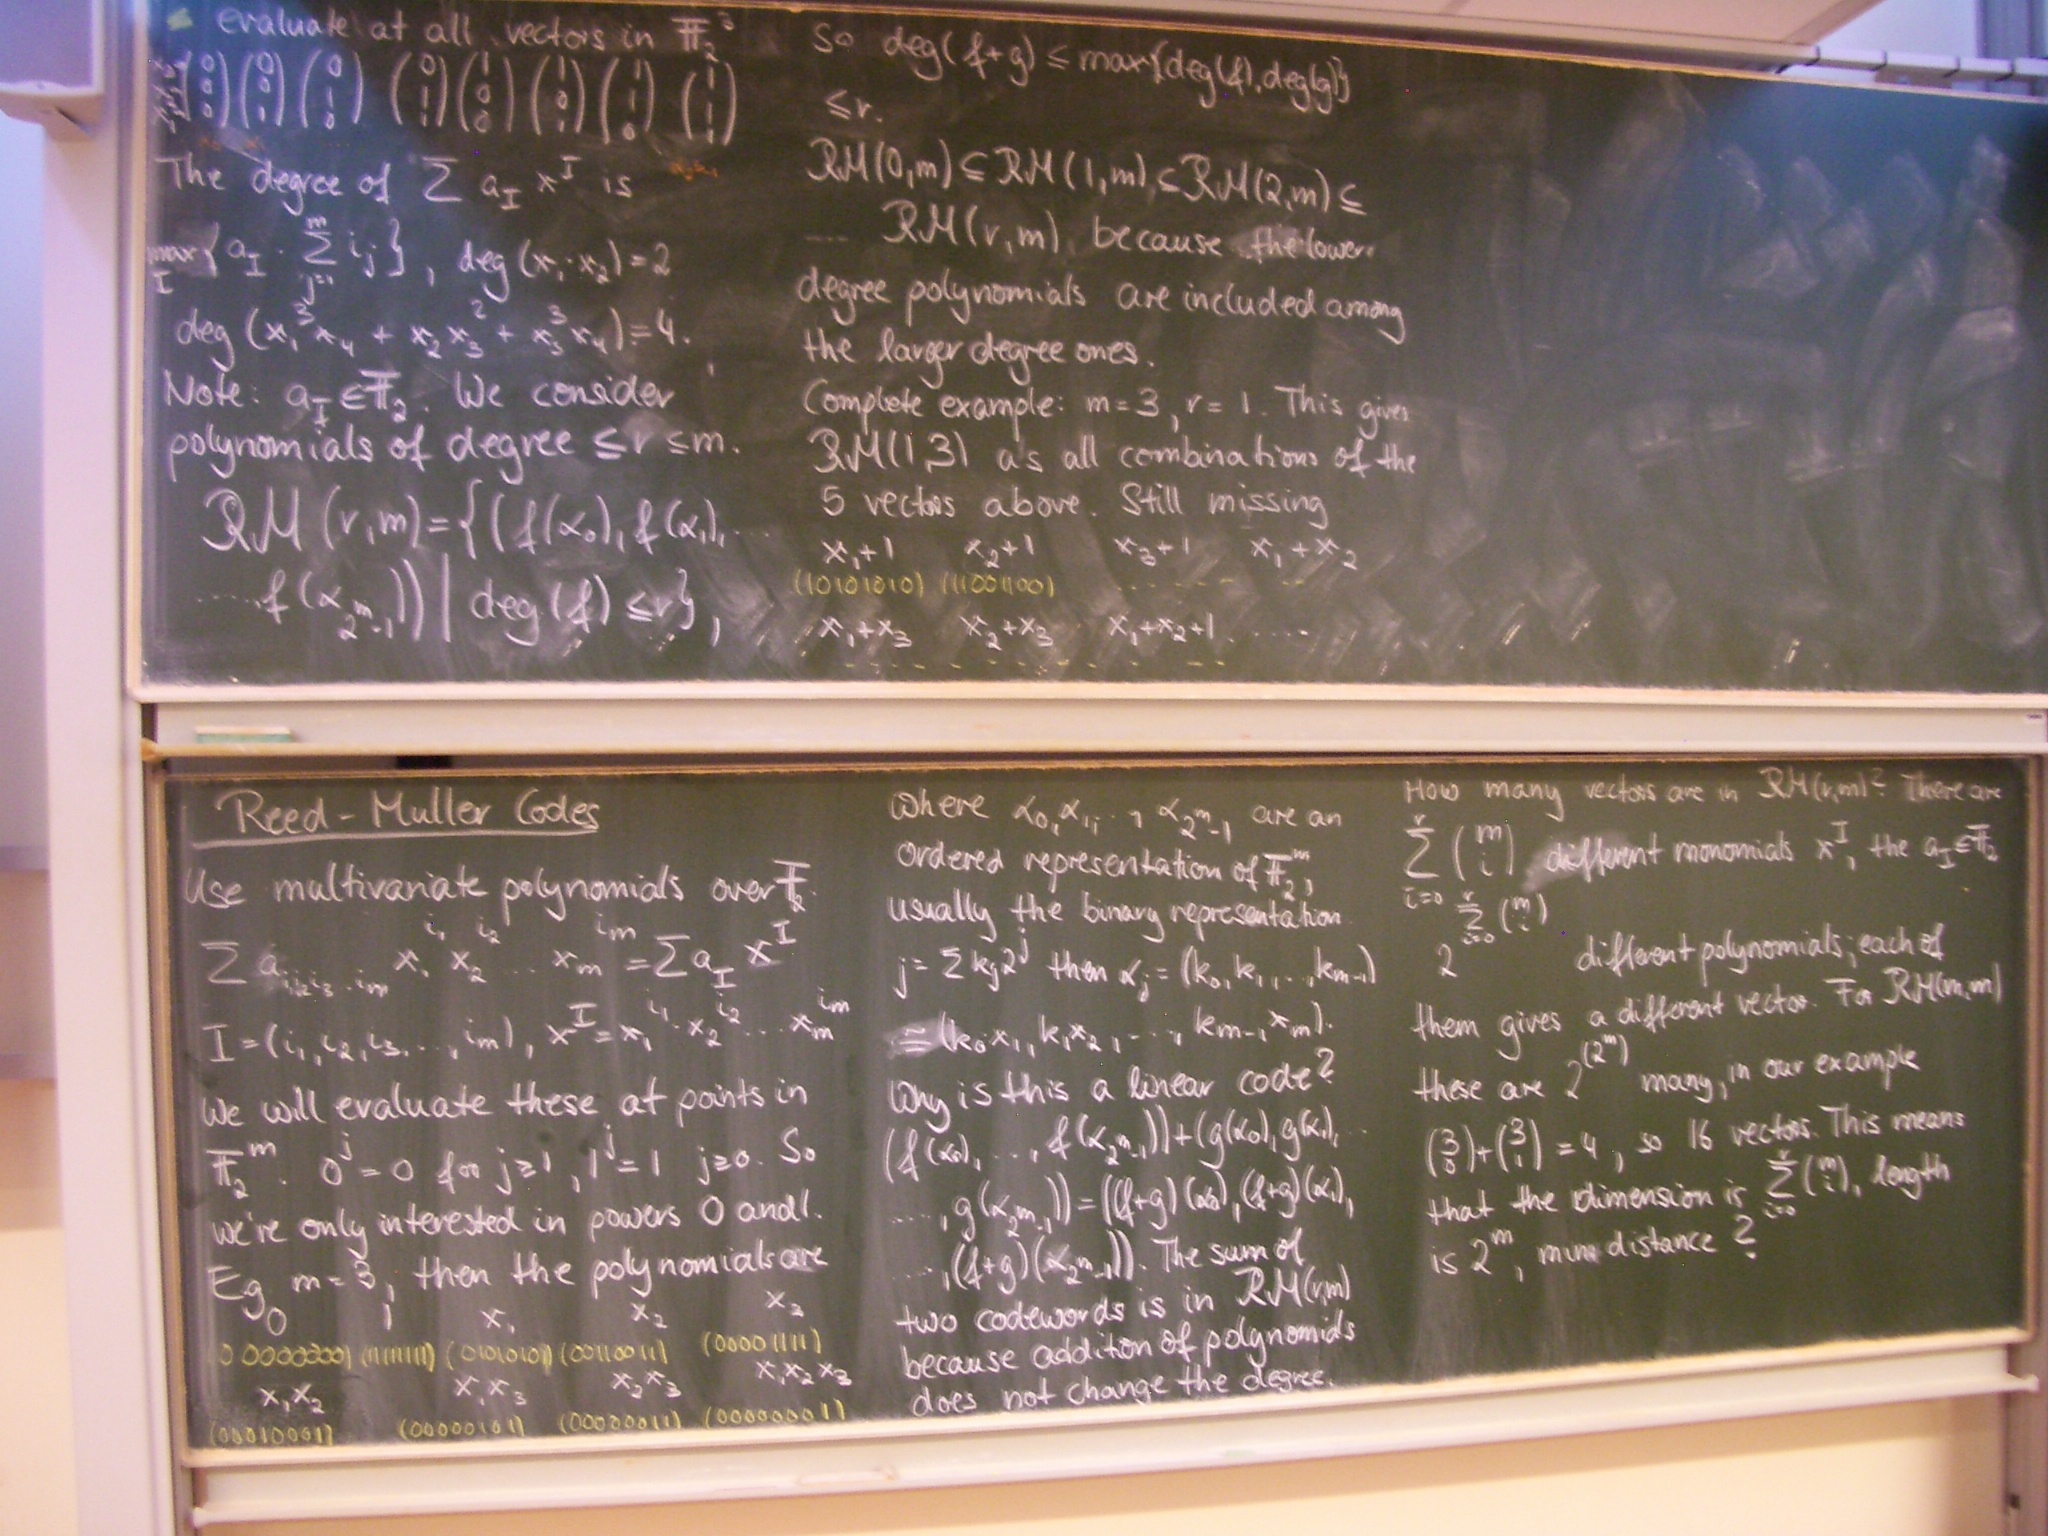 evaluate at all vectors in 𝔽₂³
x₃ x₂ x₁ (0 0 0) (0 0 1) (0 1 0) (0 1 1) (1 0 0) (1 0 1) (1 1 0) (1 1 1)
The degree of Σ a_I x^I is
max_I { a_I · Σ_{j=1}^m i_j }, deg(x₁·x₂)=2
deg (x₁³x₄ + x₂x₃² + x₃³x₄)=4.
Note: a_I ∈ 𝔽₂. We consider
polynomials of degree ≤ r ≤ m.
RM(r,m)={(f(α₀), f(α₁), ...
.... f(α_{2^m-1})) | deg(f) ≤ r},
So deg(f+g) ≤ max{deg(f), deg(g)}
≤ r.
RM(0,m) ⊆ RM(1,m) ⊆ RM(2,m) ⊆
.... RM(r,m) because the lower
degree polynomials are included among
the larger degree ones.
Complete example: m=3, r=1. This gives
RM(1,3) as all combinations of the
5 vectors above. Still missing
x₁+1 x₂+1 x₃+1 x₁+x₂
(10101010) (11001100) ......
x₁+x₃ x₂+x₃ x₁+x₂+1 .....
Reed-Muller Codes
Use multivariate polynomials over 𝔽₂.
Σ a_{i₁i₂i₃...i_m} x₁^{i₁} x₂^{i₂} ... x_m^{i_m} = Σ a_I x^I
I=(i₁,i₂,i₃,...,i_m), x^I = x₁^{i₁}·x₂^{i₂}...x_m^{i_m}
We will evaluate these at points in
𝔽₂^m. 0^j=0 for j≥1, 1^j=1 j≥0. So
we're only interested in powers 0 and 1.
Eg m=3, then the polynomials are
0 1 x₁ x₂ x₃
(00000000) (11111111) (01010101) (00110011) (00001111)
x₁x₂ x₁x₃ x₂x₃ x₁x₂x₃
(00010001) (00000101) (00000011) (00000001)
where α₀, α₁, ..., α_{2^m-1} are an
ordered representation of 𝔽₂^m,
usually the binary representation
j = Σ k_j 2^j then α_j = (k₀, k₁, ..., k_{m-1})
≅ (k₀x₁, k₁x₂, ..., k_{m-1}x_m).
Why is this a linear code?
(f(α₀), ..., f(α_{2^m-1}))+(g(α₀), g(α₁), ...
...., g(α_{2^m-1})) = ((f+g)(α₀), (f+g)(α₁),
...., (f+g)(α_{2^m-1})). The sum of
two codewords is in RM(r,m)
because addition of polynomials
does not change the degree.
How many vectors are in RM(r,m)? There are
Σ_{i=0}^r (m i) different monomials x^I, the a_I ∈ 𝔽₂
2^{Σ_{i=0}^r (m i)} different polynomials; each of
them gives a different vector. For RM(m,m)
these are 2^(2^m) many, in our example
(3 0)+(3 1)=4, so 16 vectors. This means
that the dimension is Σ_{i=0}^r (m i), length
is 2^m, min distance ?